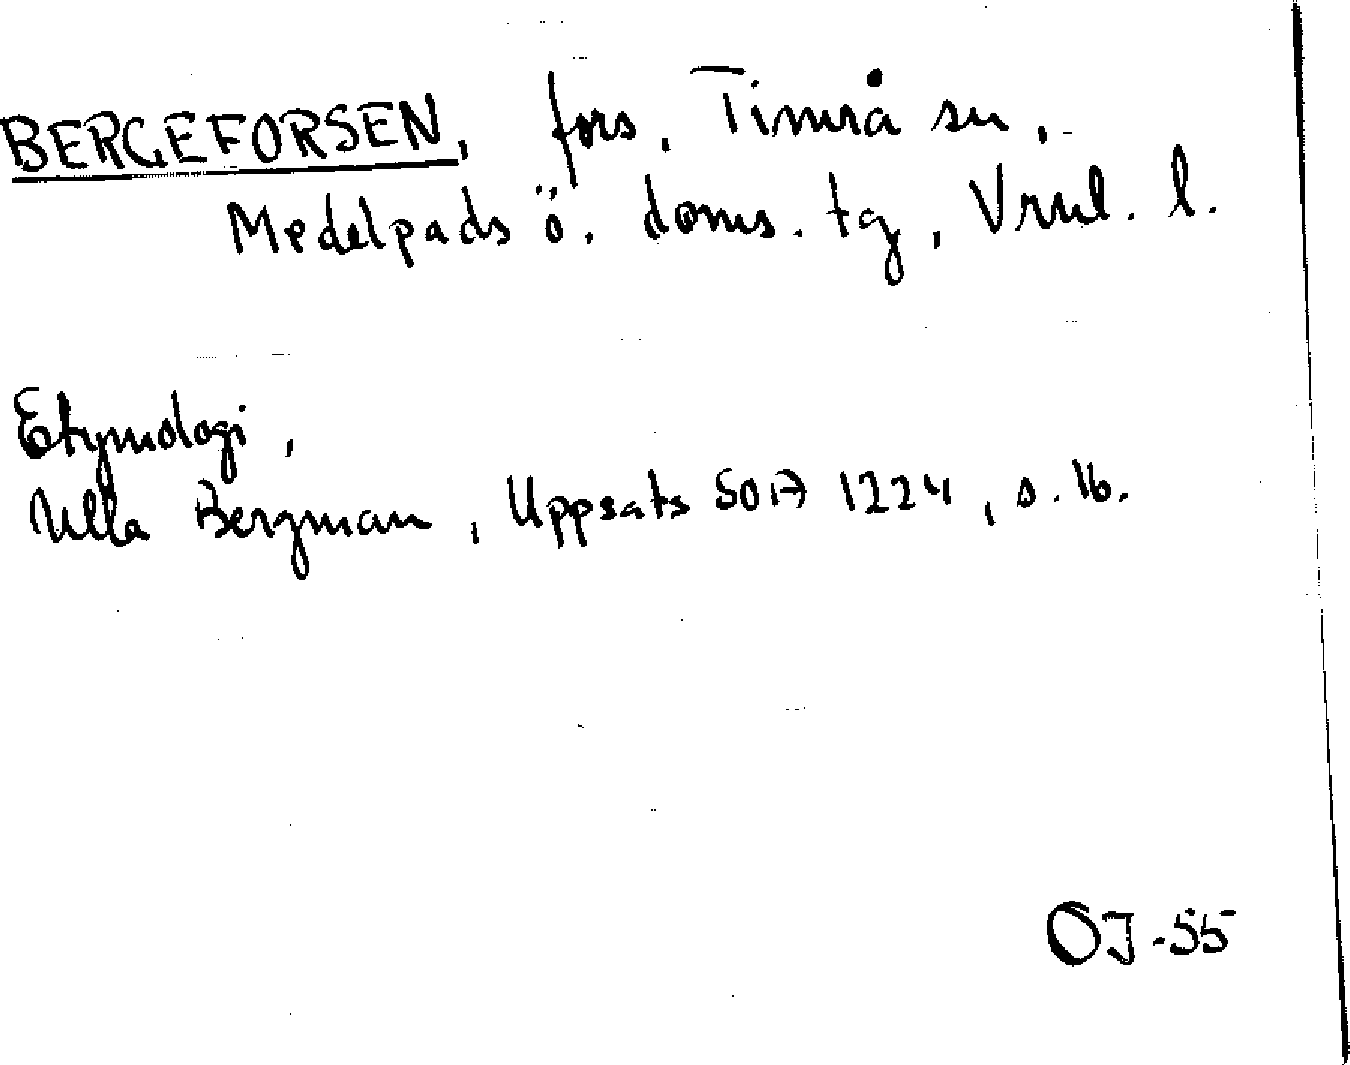 BERGEFORSEN, fors, Timrå sn,
Medelpads ö. doms. tg, Vrnl. l.
Etymologi,
Ulla Bergman, Uppsats SOA 1224, s. 16.
OJ-55